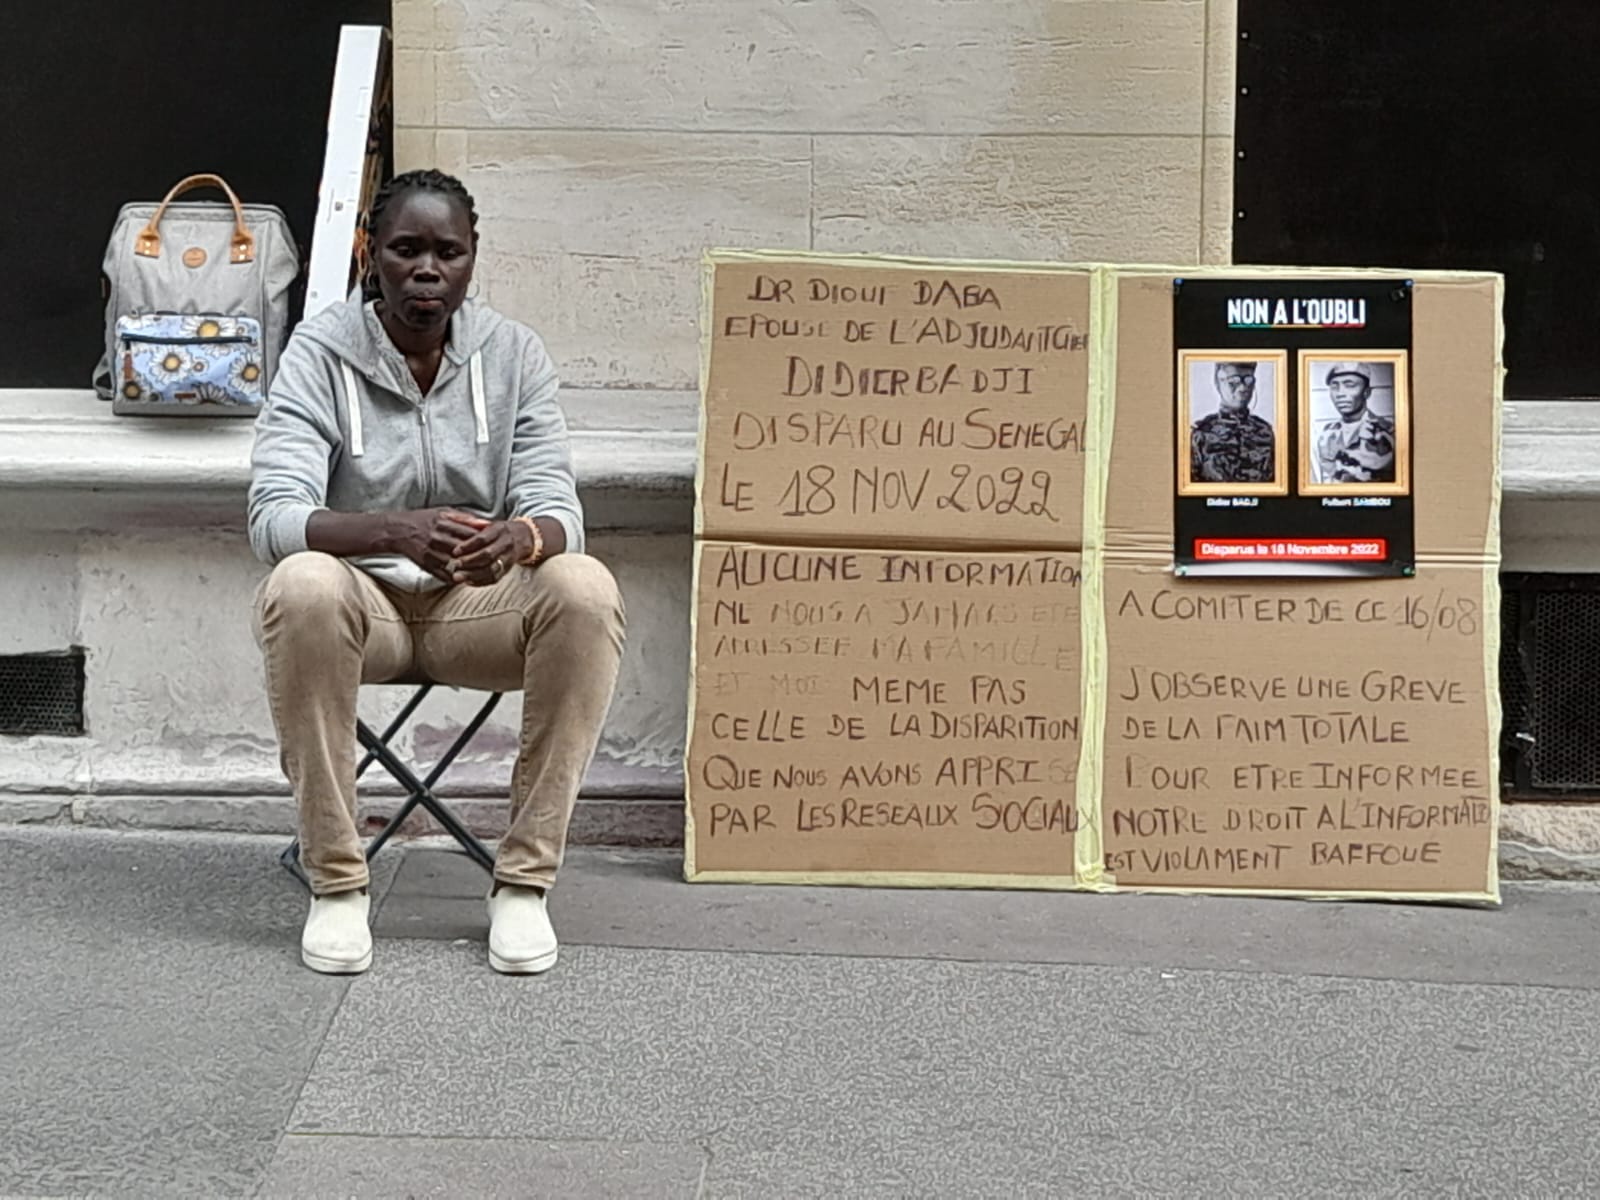 DR DIOUF DABA
EPOUSE DE L'ADJUDANTCHEF
DIDIER BADJI
DISPARU AU SENEGAL
LE 18 NOV 2022
AUCUNE INFORMATION
NE NOUS A JAMAIS ETE
ADRESSEE MA FAMILLE
ET MOI MEME PAS
CELLE DE LA DISPARITION
QUE NOUS AVONS APPRISE
PAR LES RESEAUX SOCIAUX
NON A L'OUBLI
Didier BADJI
Fulbert SAMBOU
Disparus le 18 Novembre 2022
A COMITER DE CE 16/08
J'OBSERVE UNE GREVE
DE LA FAIM TOTALE
POUR ETRE INFORMEE
NOTRE DROIT A L'INFORMATIO
EST VIOLAMENT BAFFOUE